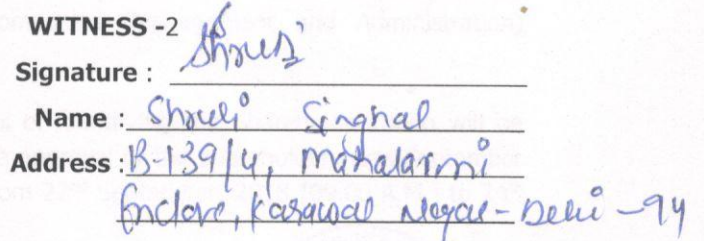 WITNESS -2
Signature : Shruti
Name : Shruti Singhal
Address : B-139/4, Mahalaxmi
Enclave, Karawal Nagar - Delhi - 94